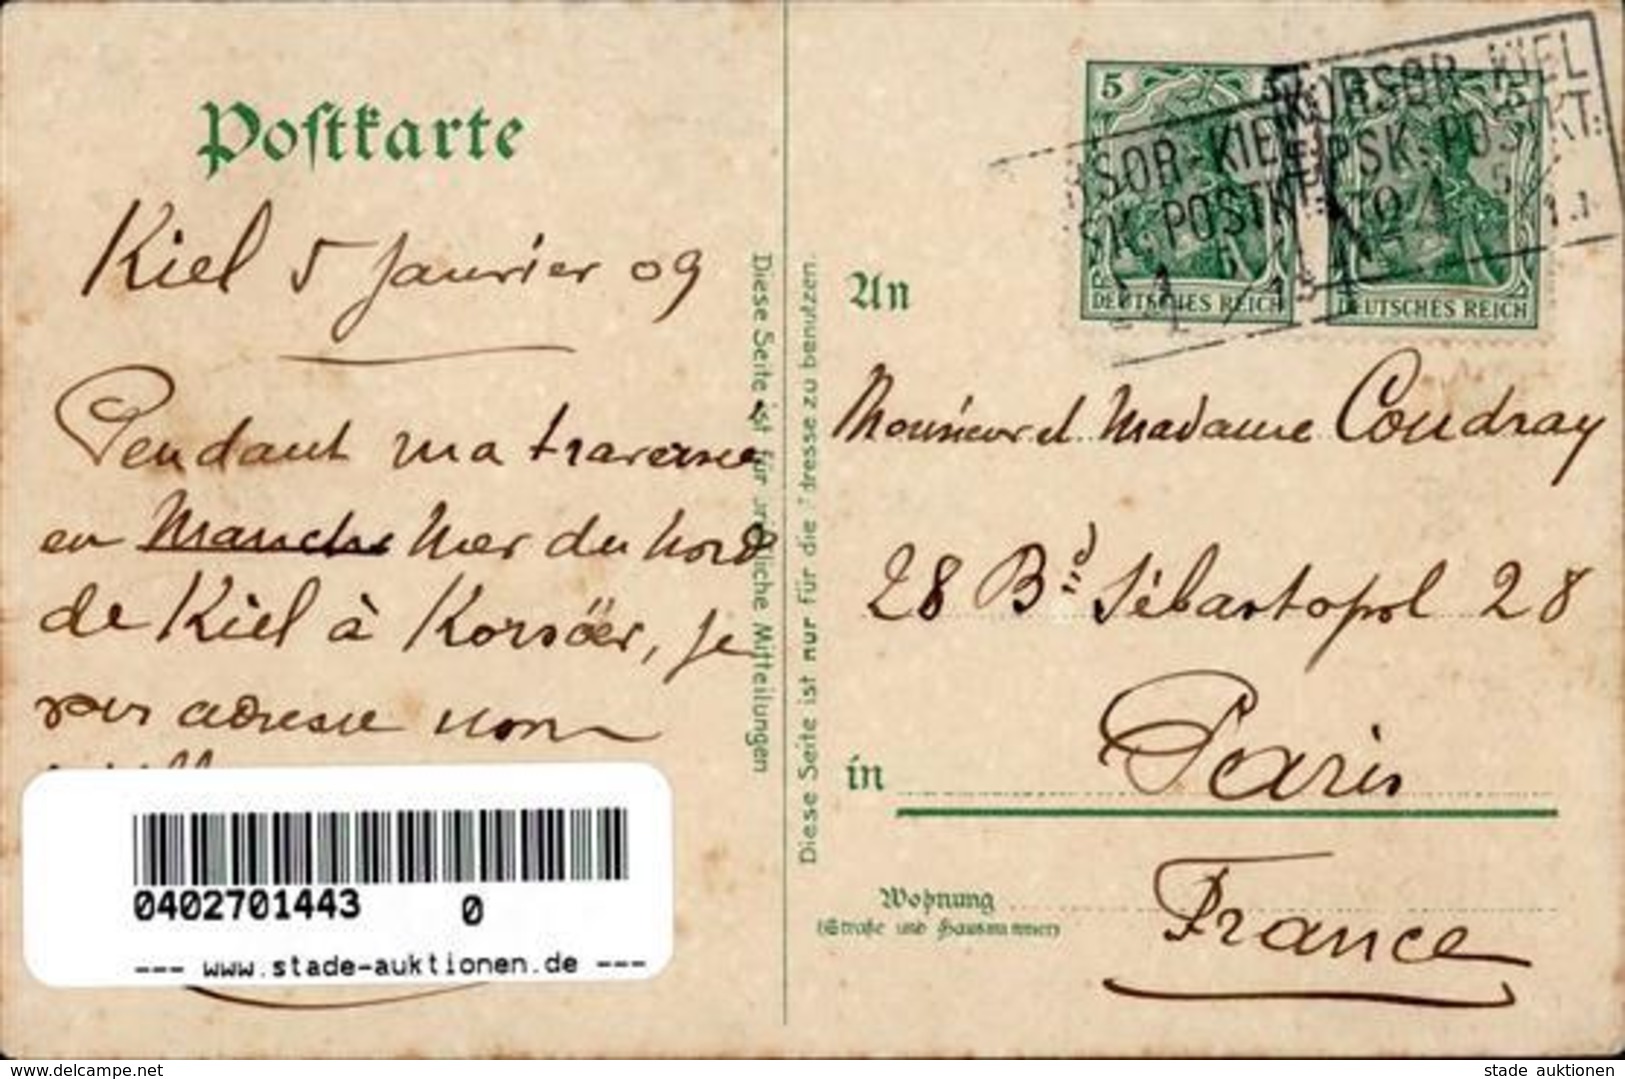 Postkarte
Kiel 5 Janvier 09
Pendant ma traversée
en Manche Mer du Nord
de Kiel à Korsöer, je
vous adresse mon
0402701443 0
--- www.stade-auktionen.de ---
Diese Seite ist für schriftliche Mitteilungen
Diese Seite ist nur für die Adresse zu benutzen.
5
DEUTSCHES REICH
5
DEUTSCHES REICH
RSOR-KIEL
SK. POSTKT.
KORSOR-KIEL
DPSK. POSTKT.
An
Monsieur et Madame Coudray
28 Bd Sébastopol 28
in Paris
Wohnung
(Straße und Hausnummer)
France
www.delcampe.net
stade auktionen